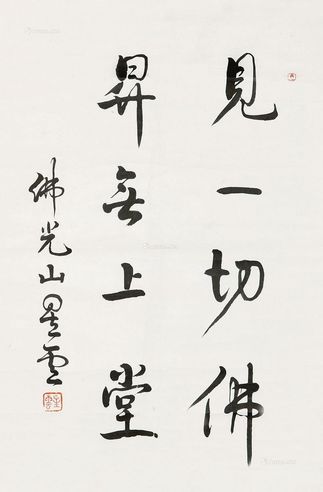 見一切佛
昇無上堂
佛光山星雲